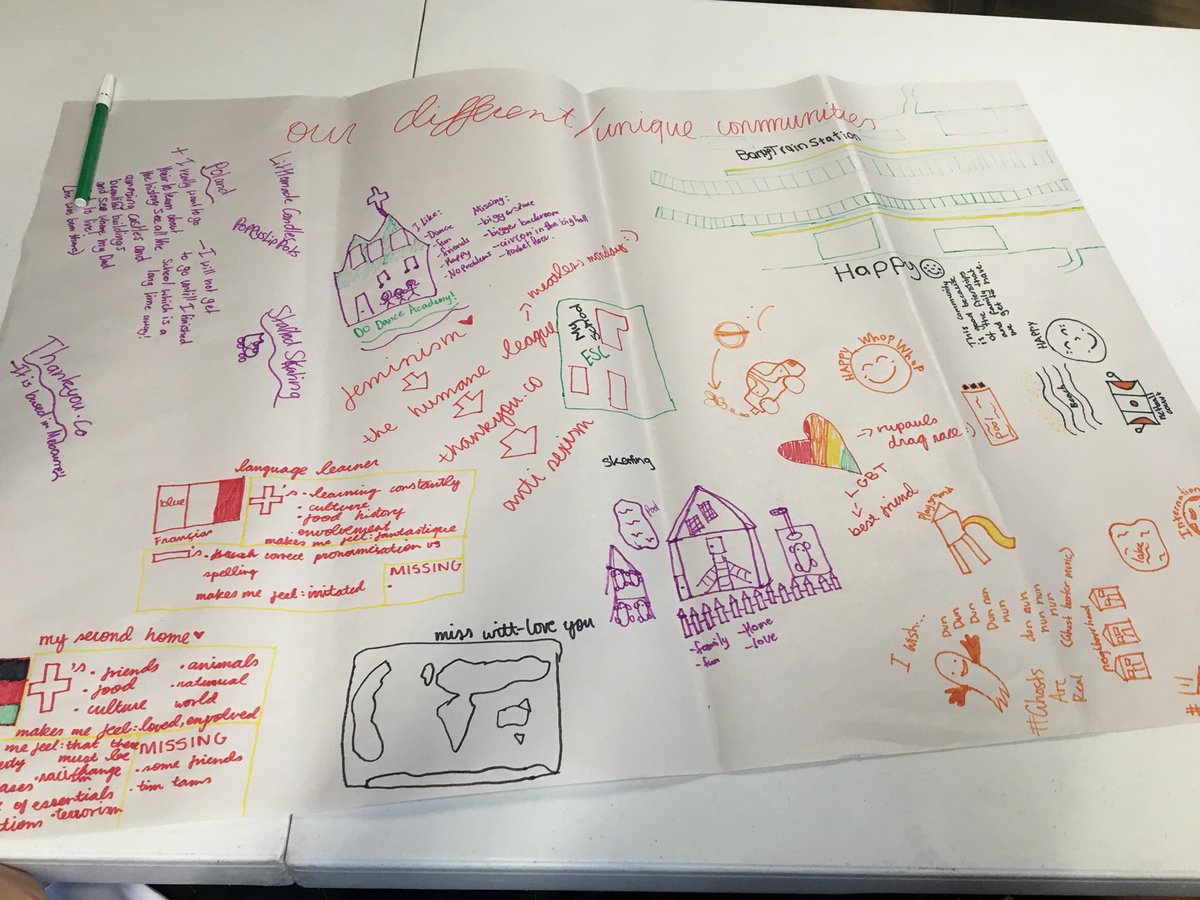 our different/unique communities
Train Station
Poland
+ I really want to go
their to learn about
the history. See all the
amazing castles and
beautiful buildings
and see where my Dad
use to live!
(he was born there)
- I will not get
to go untill I finished
School which is a
long time away!
Thankyou.Co
It is based in
I like:
-Dance
-fun
-friends
-Happy
-No Problems
Missing:
-bigger
-bigger backroom
-aircon in the big hall
DO Dance Academy!
feminism
the humane league
-> meatless mondays :)
thankyou.co
anti sexism
My
School
ESC
Happy
This community
is good because
of the
and family that
we get to have.
HAPPY
HAPPY WHOP WHOP
Pool
Beach
Netball
court
-> rupauls
drag race :)
LGBT
best friend
language learner
blue
Français
+'s
· learning constantly
· culture
· food history
· envolvement
makes me feel: fantastique
-'s
· french correct pronounciation vs
spelling
makes me feel: irritated
MISSING
my second home
+'s
· friends
· food
· culture
· animals
· natural
world
makes me feel: loved, envolved
me feel: that there
must be
change
of essentials
· terrorism
MISSING
· some friends
· tim tams
miss witt-love you
Pool
-family
-fun
-Home
-love
Playground
Lake
neighbourhood
I wish...
Dun
Dun
Dun
Dun nun
nun
dun dun
nun nun
nun
(Ghost buster music)
#Ghosts
Are
Real